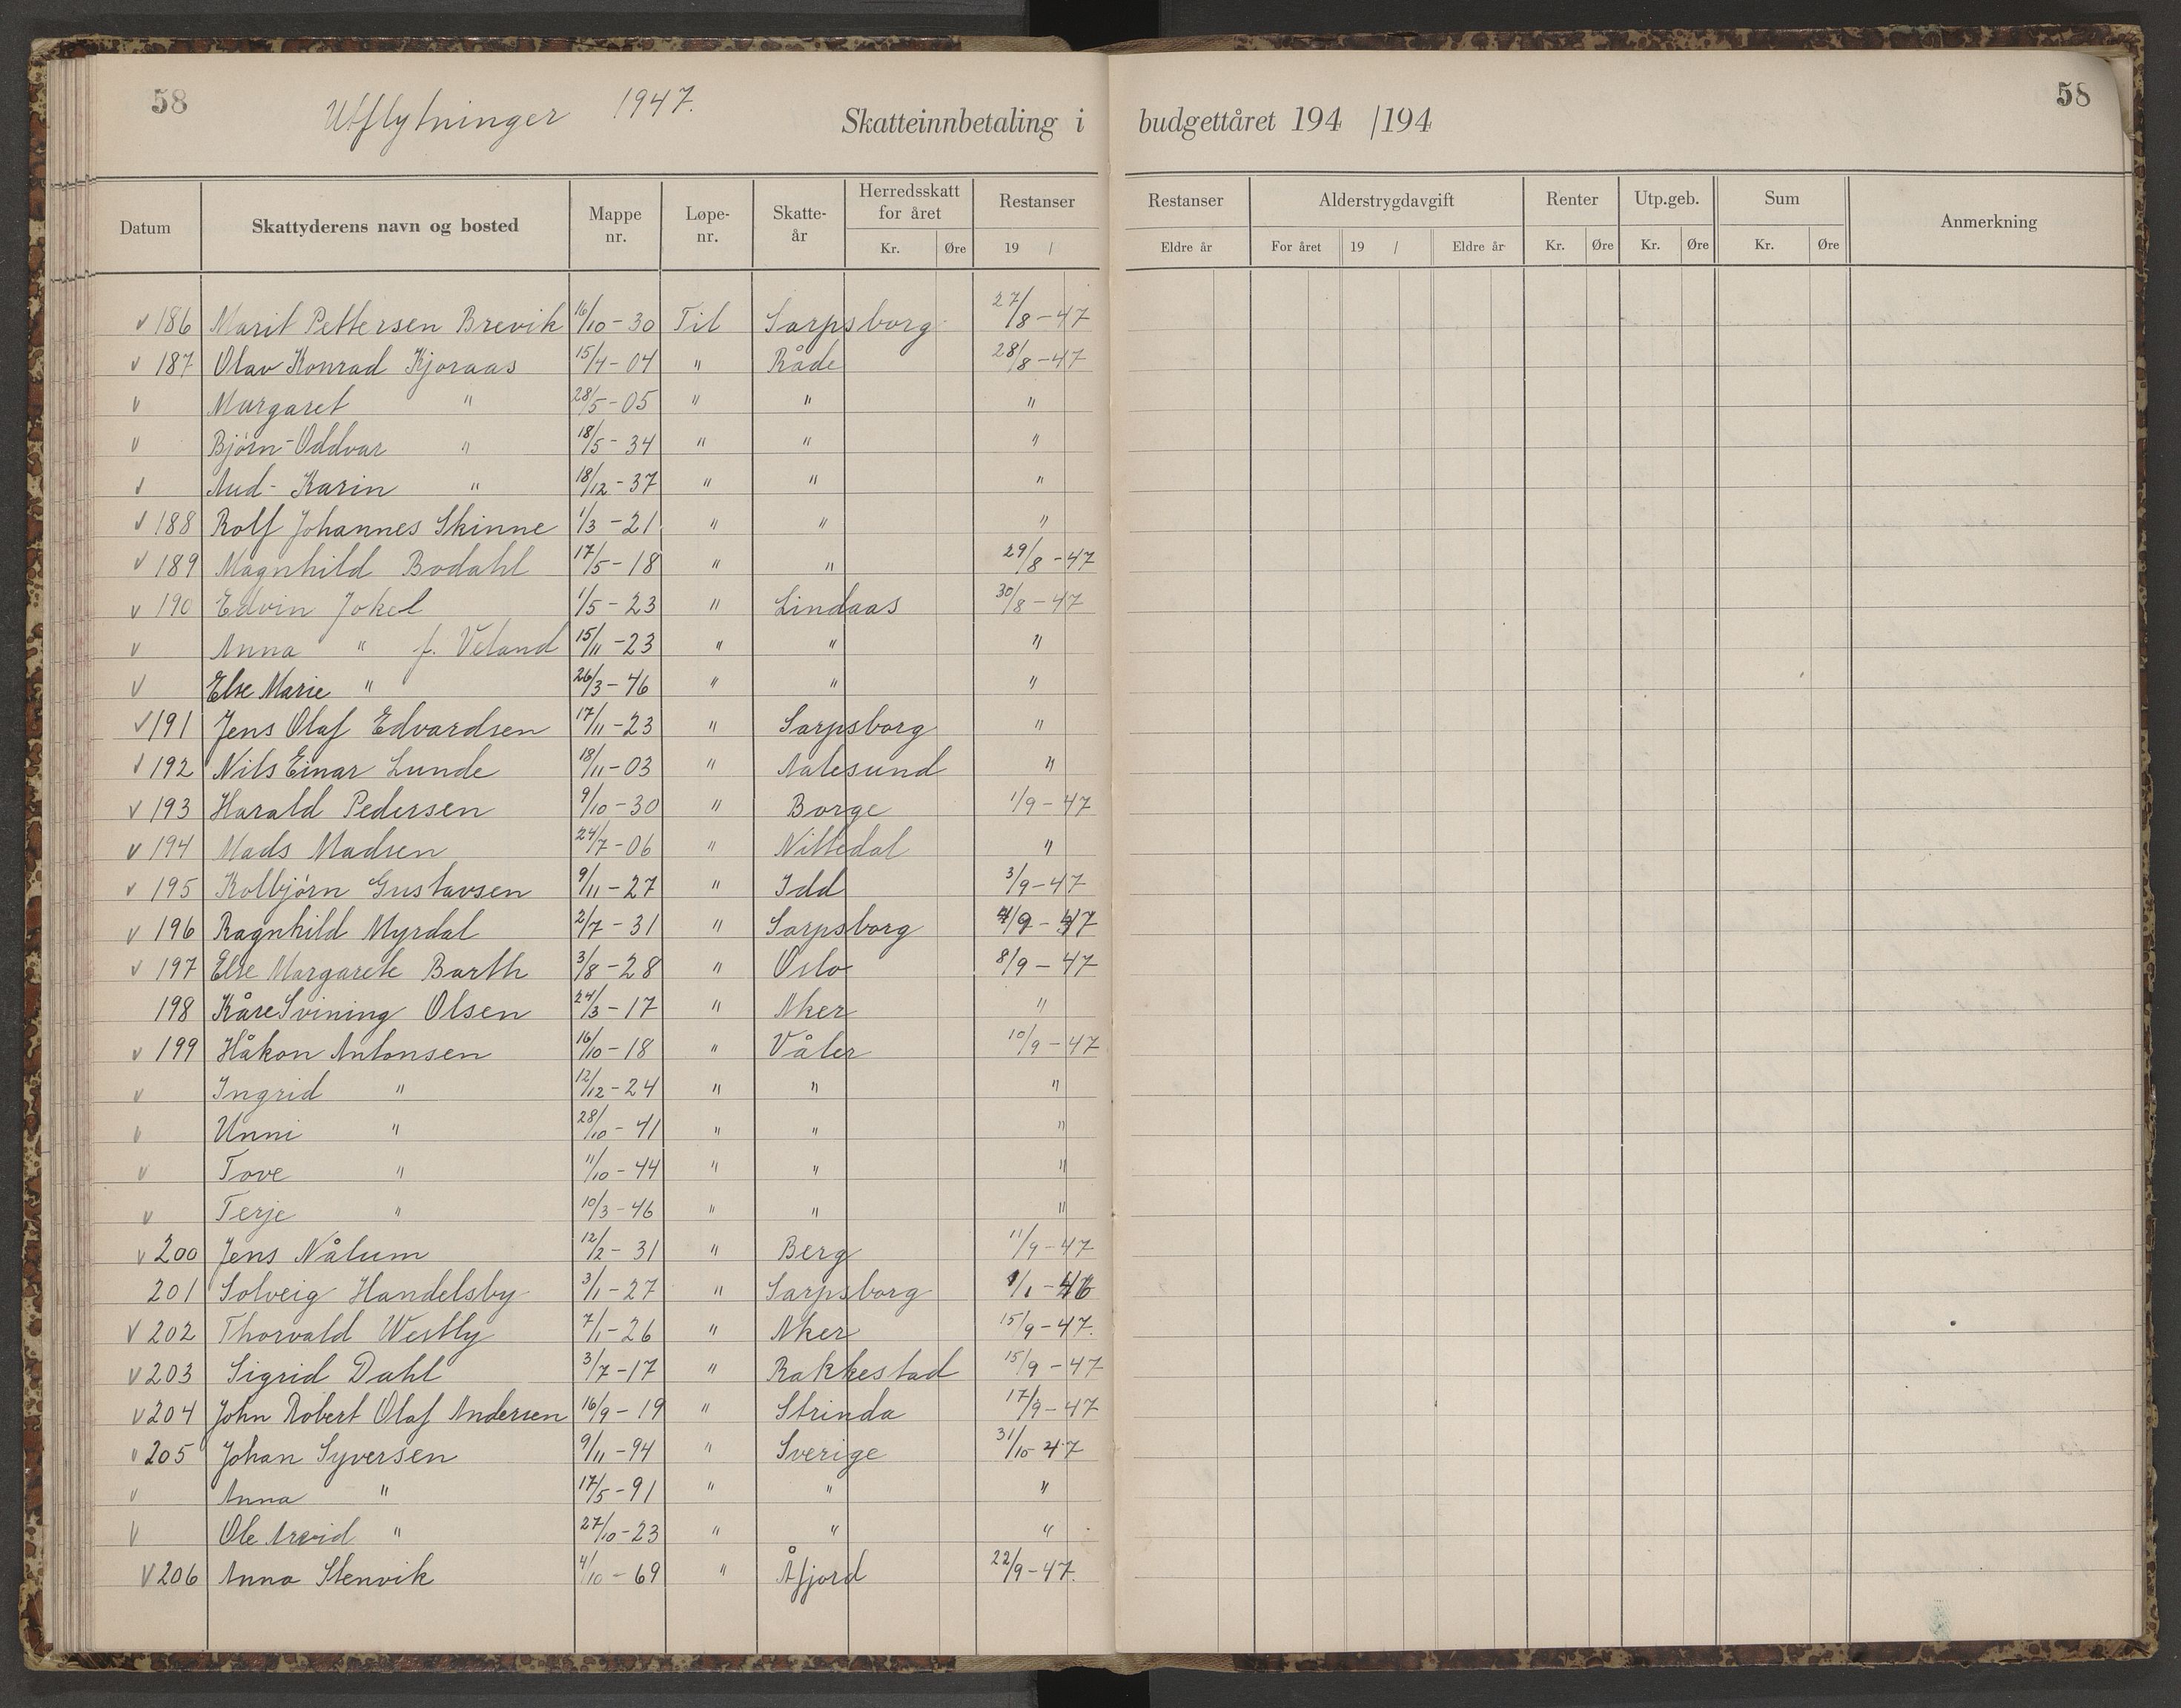 58
Utflytninger 1947.
Skatteinnbetaling i budgettåret 194 /194
58
Datum Skattyderens navn og bosted Mappe nr. Løpe-nr. Skatte-år Herredsskatt for året Kr. Øre Restanser 19 / Restanser Eldre år Alderstrygdavgift For året 19 / Eldre år Renter Kr. Øre Utp.geb. Kr. Øre Sum Kr. Øre Anmerkning
v 186 Marit Pettersen Brevik 16/10-30 Til Sarpsborg 27/8-47
v 187 Olav Konrad Kjoraas 15/4-04 " Råde 28/8-47
v Margaret " 28/5-05 " " "
v Bjørn-Oddvar " 18/5-34 " " "
v Aud-Karin " 18/12-37 " " "
v 188 Rolf Johannes Skinne 1/3-21 " " "
v 189 Magnhild Bodahl 17/5-18 " " 29/8-47
v 190 Edvin Jokel 1/5-23 " Lindaas 30/8-47
v Anna " f. Veland 15/11-23 " " "
v Else Marie " 26/3-46 " " "
v 191 Jens Olaf Edvardsen 17/11-23 " Sarpsborg "
v 192 Nils Einar Lunde 18/11-03 " Aalesund "
v 193 Harald Pedersen 9/10-30 " Borge 1/9-47
v 194 Mads Madsen 24/7-06 " Nittedal "
v 195 Kolbjørn Gustavsen 9/11-27 " Idd 3/9-47
v 196 Ragnhild Myrdal 2/7-31 " Sarpsborg 4/9-47
v 197 Else Margarete Barth 3/8-28 " Oslo 8/9-47
198 Kåre Svining Olsen 24/3-17 " Aker "
v 199 Håkon Antonsen 16/10-18 " Våler 10/9-47
v Ingrid " 12/12-24 " " "
v Unni " 28/10-41 " " "
v Tove " 11/10-44 " " "
v Terje " 10/3-46 " " "
v 200 Jens Nålum 12/2-31 " Berg 11/9-47
201 Solveig Handelsby 3/1-27 " Sarpsborg 1/1-46
v 202 Thorvald Westly 7/1-26 " Aker 15/9-47.
v 203 Sigrid Dahl 3/7-17 " Rakkestad 15/9-47
v 204 John Robert Olaf Andersen 16/9-19 " Strinda 17/9-47
v 205 Johan Syversen 9/11-94 " Sverige 31/10-47
v Anna " 17/5-91 " " "
v Ole Arvid " 27/10-23 " " "
v 206 Anna Stenvik 4/10-69 " Åfjord 22/9-47.